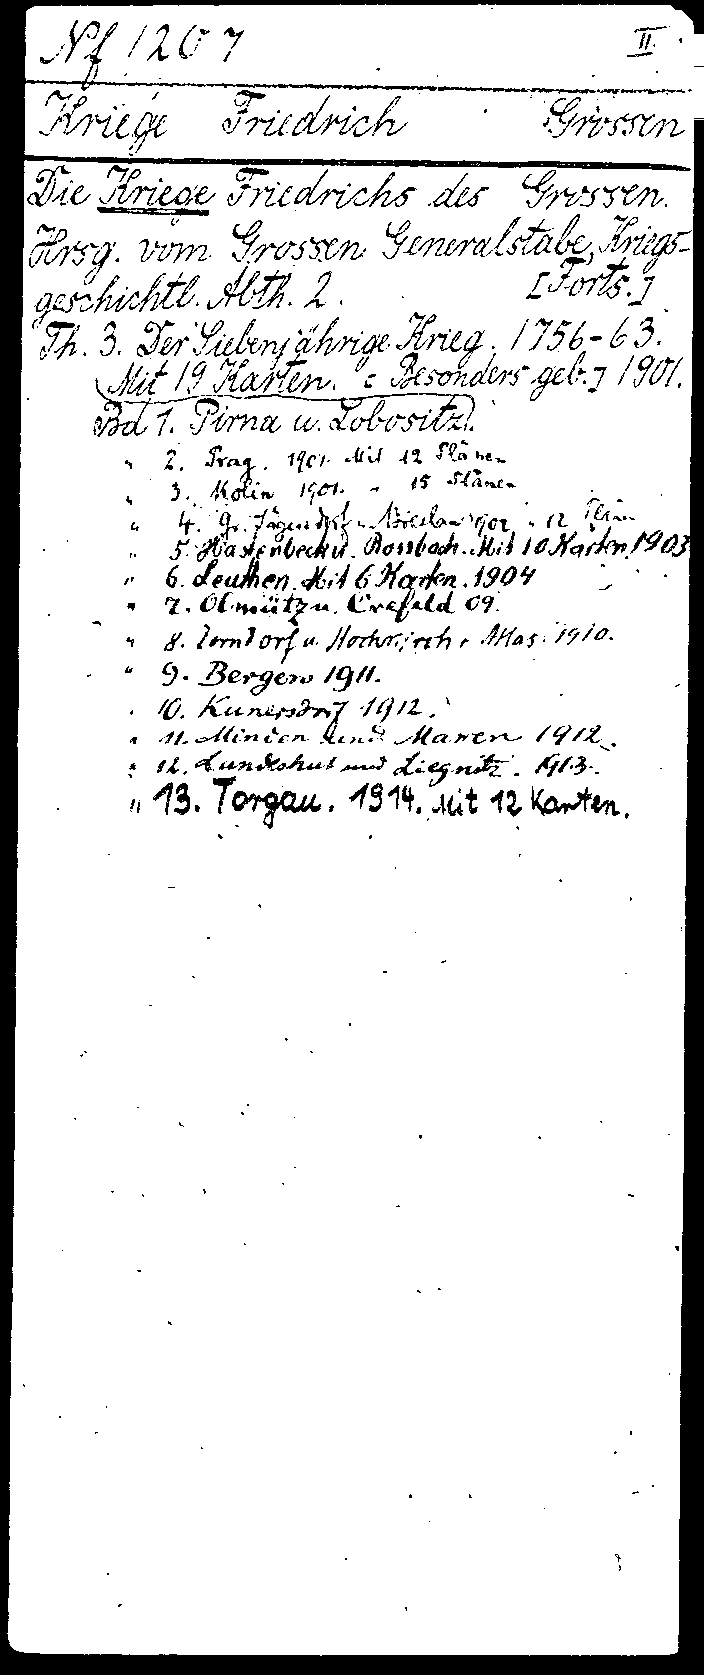 Nf 1207 II.
Kriege Friedrich Grossen
Die Kriege Friedrichs des Grossen.
Hrsg. vom Grossen Generalstabe, Kriegs-
geschichtl. Abth. 2. [Forts.]
Th. 3. Der Siebenjährige Krieg. 1756-63.
Mit 19 Karten. [Besonders geb.] 1901.
Bd 1. Pirna u. Lobositz.
" 2. Prag. 1901. Mit 12 Plänen
" 3. Kolin 1901. " 15 Plänen
" 4. Gr. Jägerndorf u. Breslau 1902 " 12 Plän
" 5. Hastenbeck u. Rossbach. Mit 10 Karten 1903
" 6. Leuthen. Mit 6 Karten. 1904
" 7. Olmütz u. Crefeld 09.
" 8. Zorndorf u. Hochkirch. Atlas. 1910.
" 9. Bergen 1911.
" 10. Kunersdorf 1912.
" 11. Minden und Maxen 1912.
" 12. Landeshut und Liegnitz. 1913.
" 13. Torgau. 1914. Mit 12 Karten.